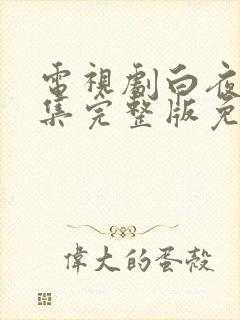 電視劇白夜
集完整版免
偉大的蛋殼